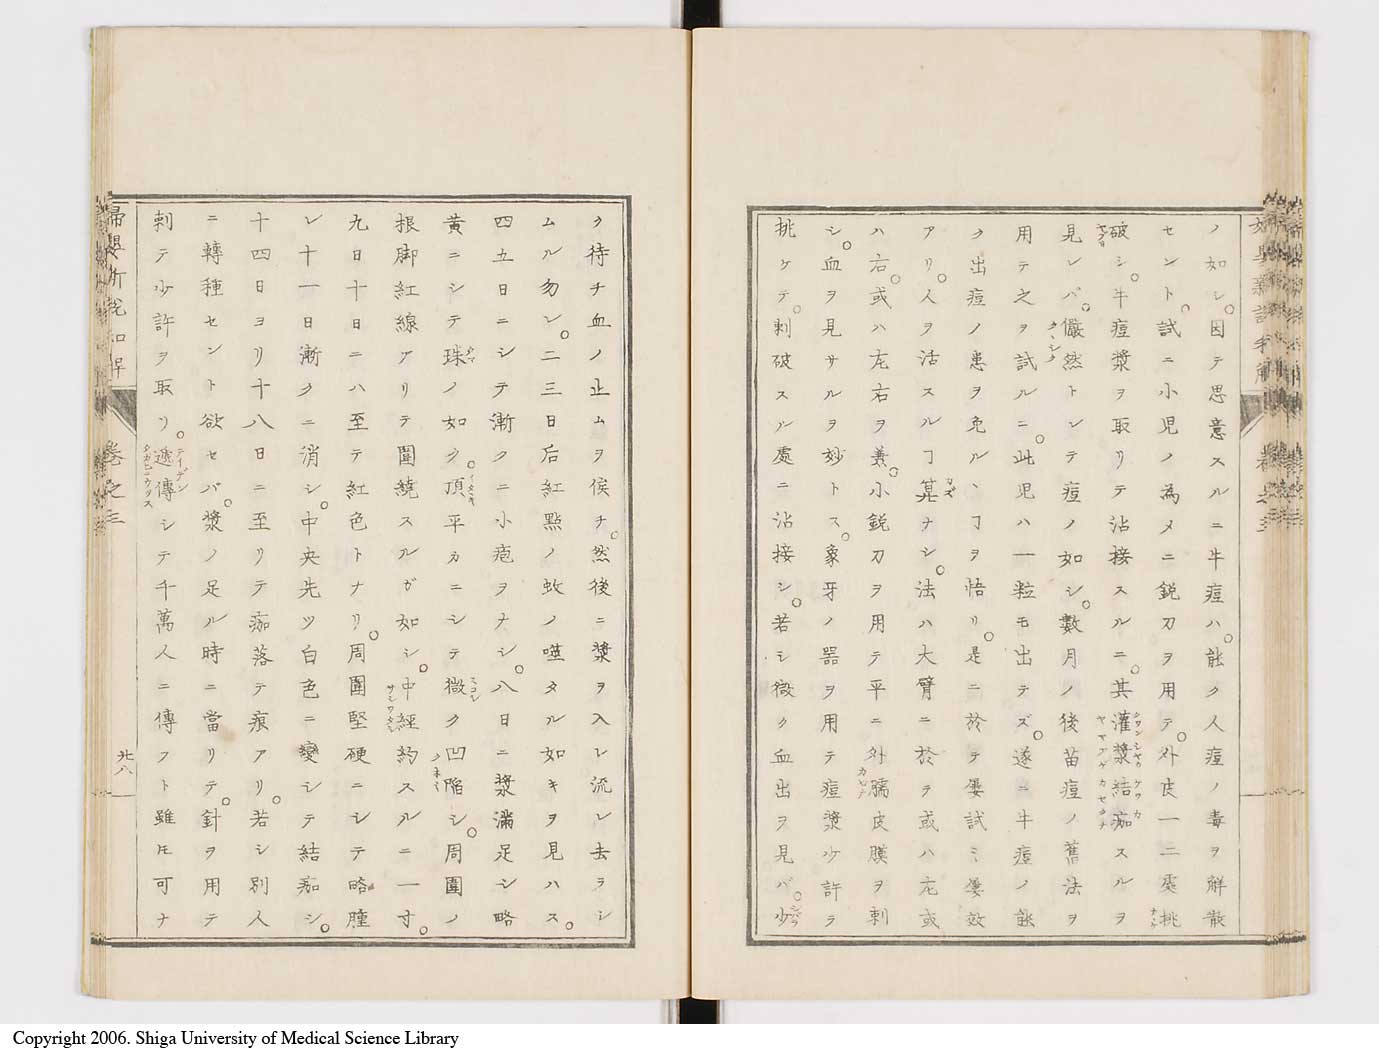 ノ如シ。因テ思意スルニ牛痘ハ。能ク人痘ノ毒ヲ解散
セント。試ニ小児ノ為メニ鋭刀ヲ用テ。外皮一二處挑
破シ。牛痘漿ヲ取リテ沾接スルニ。其灌漿結痂スルヲ
見レバ。儼然トシテ痘ノ如シ。數月ノ後苗痘ノ舊法ヲ
用テ之ヲ試ルニ。此児ハ一粒モ出テズ。遂ニ牛痘ノ能
ク出痘ノ患ヲ免ルヽヿヲ悟リ。是ニ於テ屢試ミ屢效
アリ。人ヲ活スルヿ筭ナシ。法ハ大臂ニ於ヲ或ハ左或
ハ右。或ハ左右ヲ兼。小鋭刀ヲ用テ平ニ外臑皮膜ヲ刺
シ。血ヲ見サルヲ妙トス。象牙ノ器ヲ用テ痘漿少許ヲ
挑ケテ。刺破スル處ニ沾接シ。若シ微ク血出ヲ見バ。少
ク待チ血ノ止ムヲ俟チ。然後ニ漿ヲ入レ流レ去ラシ
ムル勿レ。二三日后紅點ノ蚊ノ噬タル如キヲ見ハス。
四五日ニシテ漸クニ小疱ヲナシ。八日ニ漿滿足シ略
黄ニシテ珠ノ如ク。頂平カニシテ微ク凹陥シ。周圍ノ
根脚紅線アリテ圍繞スルガ如シ。中経約スルニ一寸。
九日十日ニハ至テ紅色トナリ。周圍堅硬ニシテ略腫
レ十一日漸クニ消シ。中央先ツ白色ニ變シテ結痂シ。
十四日ヨリ十八日ニ至リテ痂落テ痕アリ。若シ別人
ニ轉種セント欲セバ。漿ノ足ル時ニ當リテ。針ヲ用テ
刺テ少許ヲ取リ。遞傳シテ千萬人ニ傳フト雖𪜈可ナ
卷之三
廿八
Copyright 2006. Shiga University of Medical Science Library